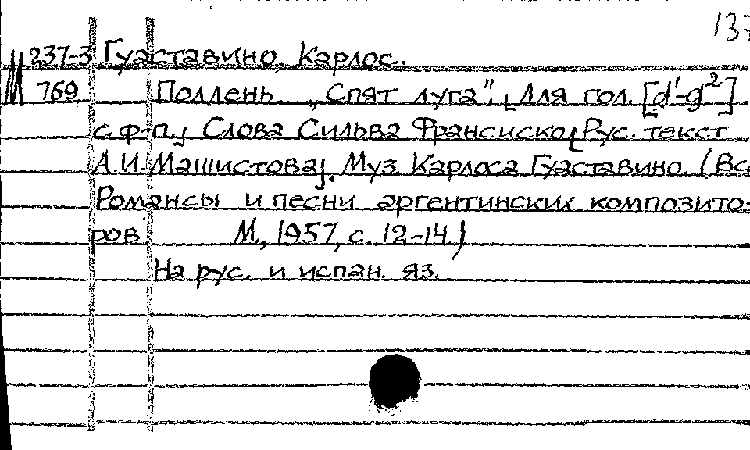 137
М 237-3 Гуаставино, Карлос.
769 Поллень. „Спят луга". [Для гол. [d¹-g²]
с ф-п.] Слова Сильва Франсиско. [Рус. текст
А.И. Машистова]. Муз Карлоса Гуаставино. (В сб.
Романсы и песни аргентинских композито-
ров М., 1957, с. 12-14)
На рус. и испан. яз.